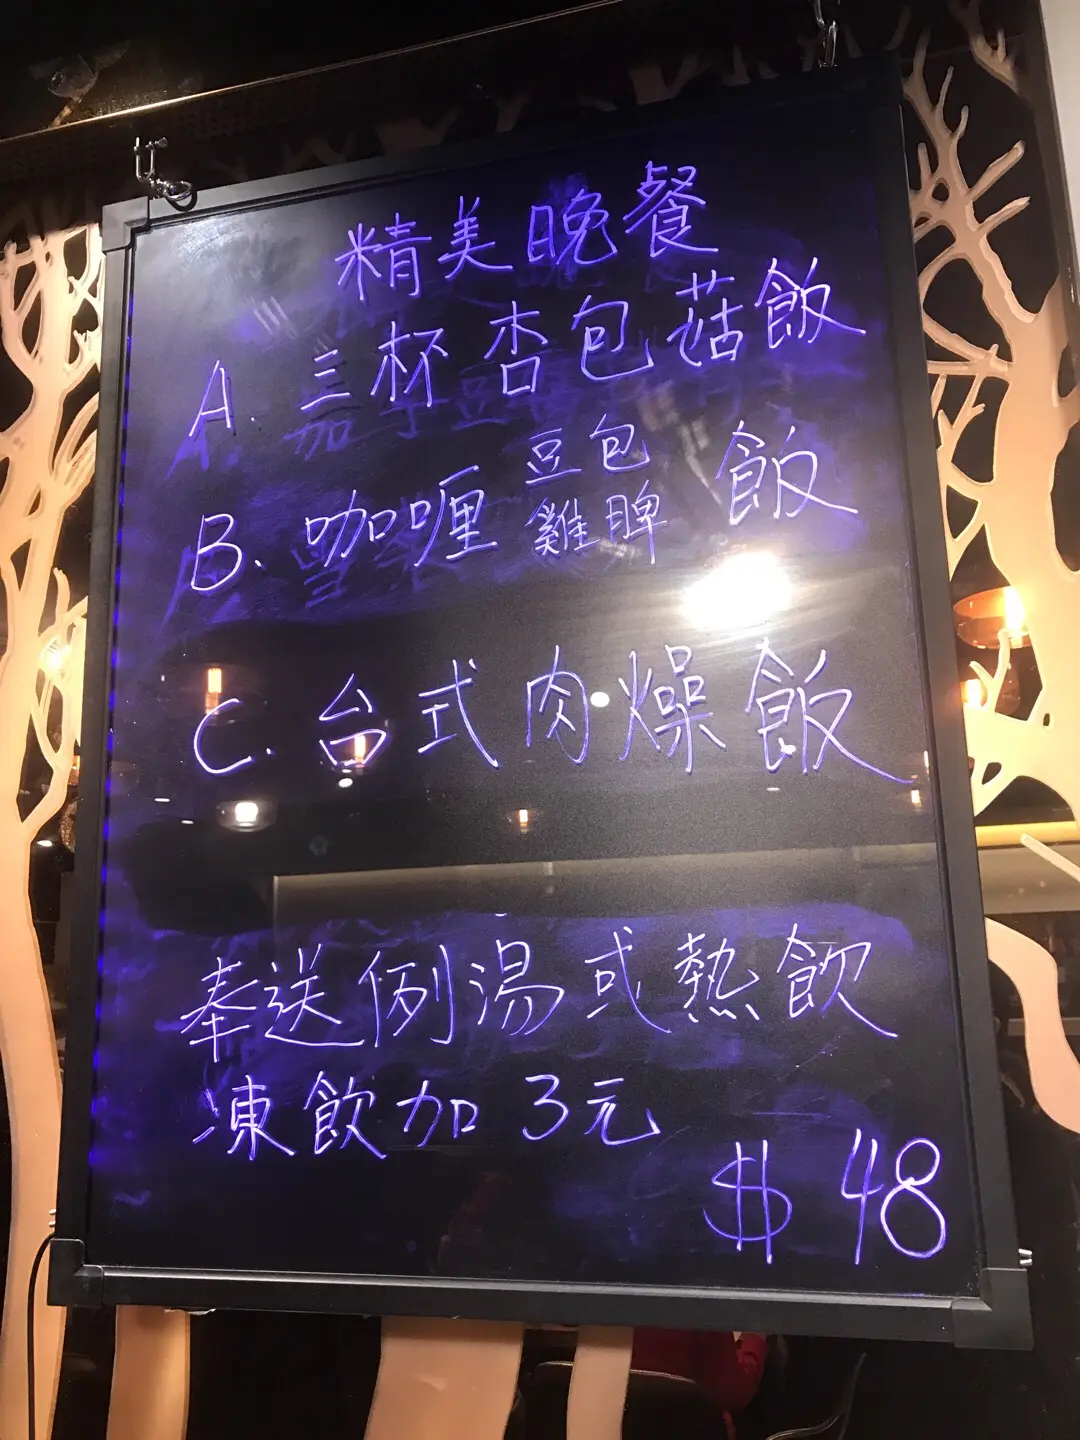 精美晚餐
A. 三杯杏包菇飯
B. 咖喱豆包雞脾飯
C. 台式肉燥飯
奉送例湯或熱飲
凍飲加3元
$48